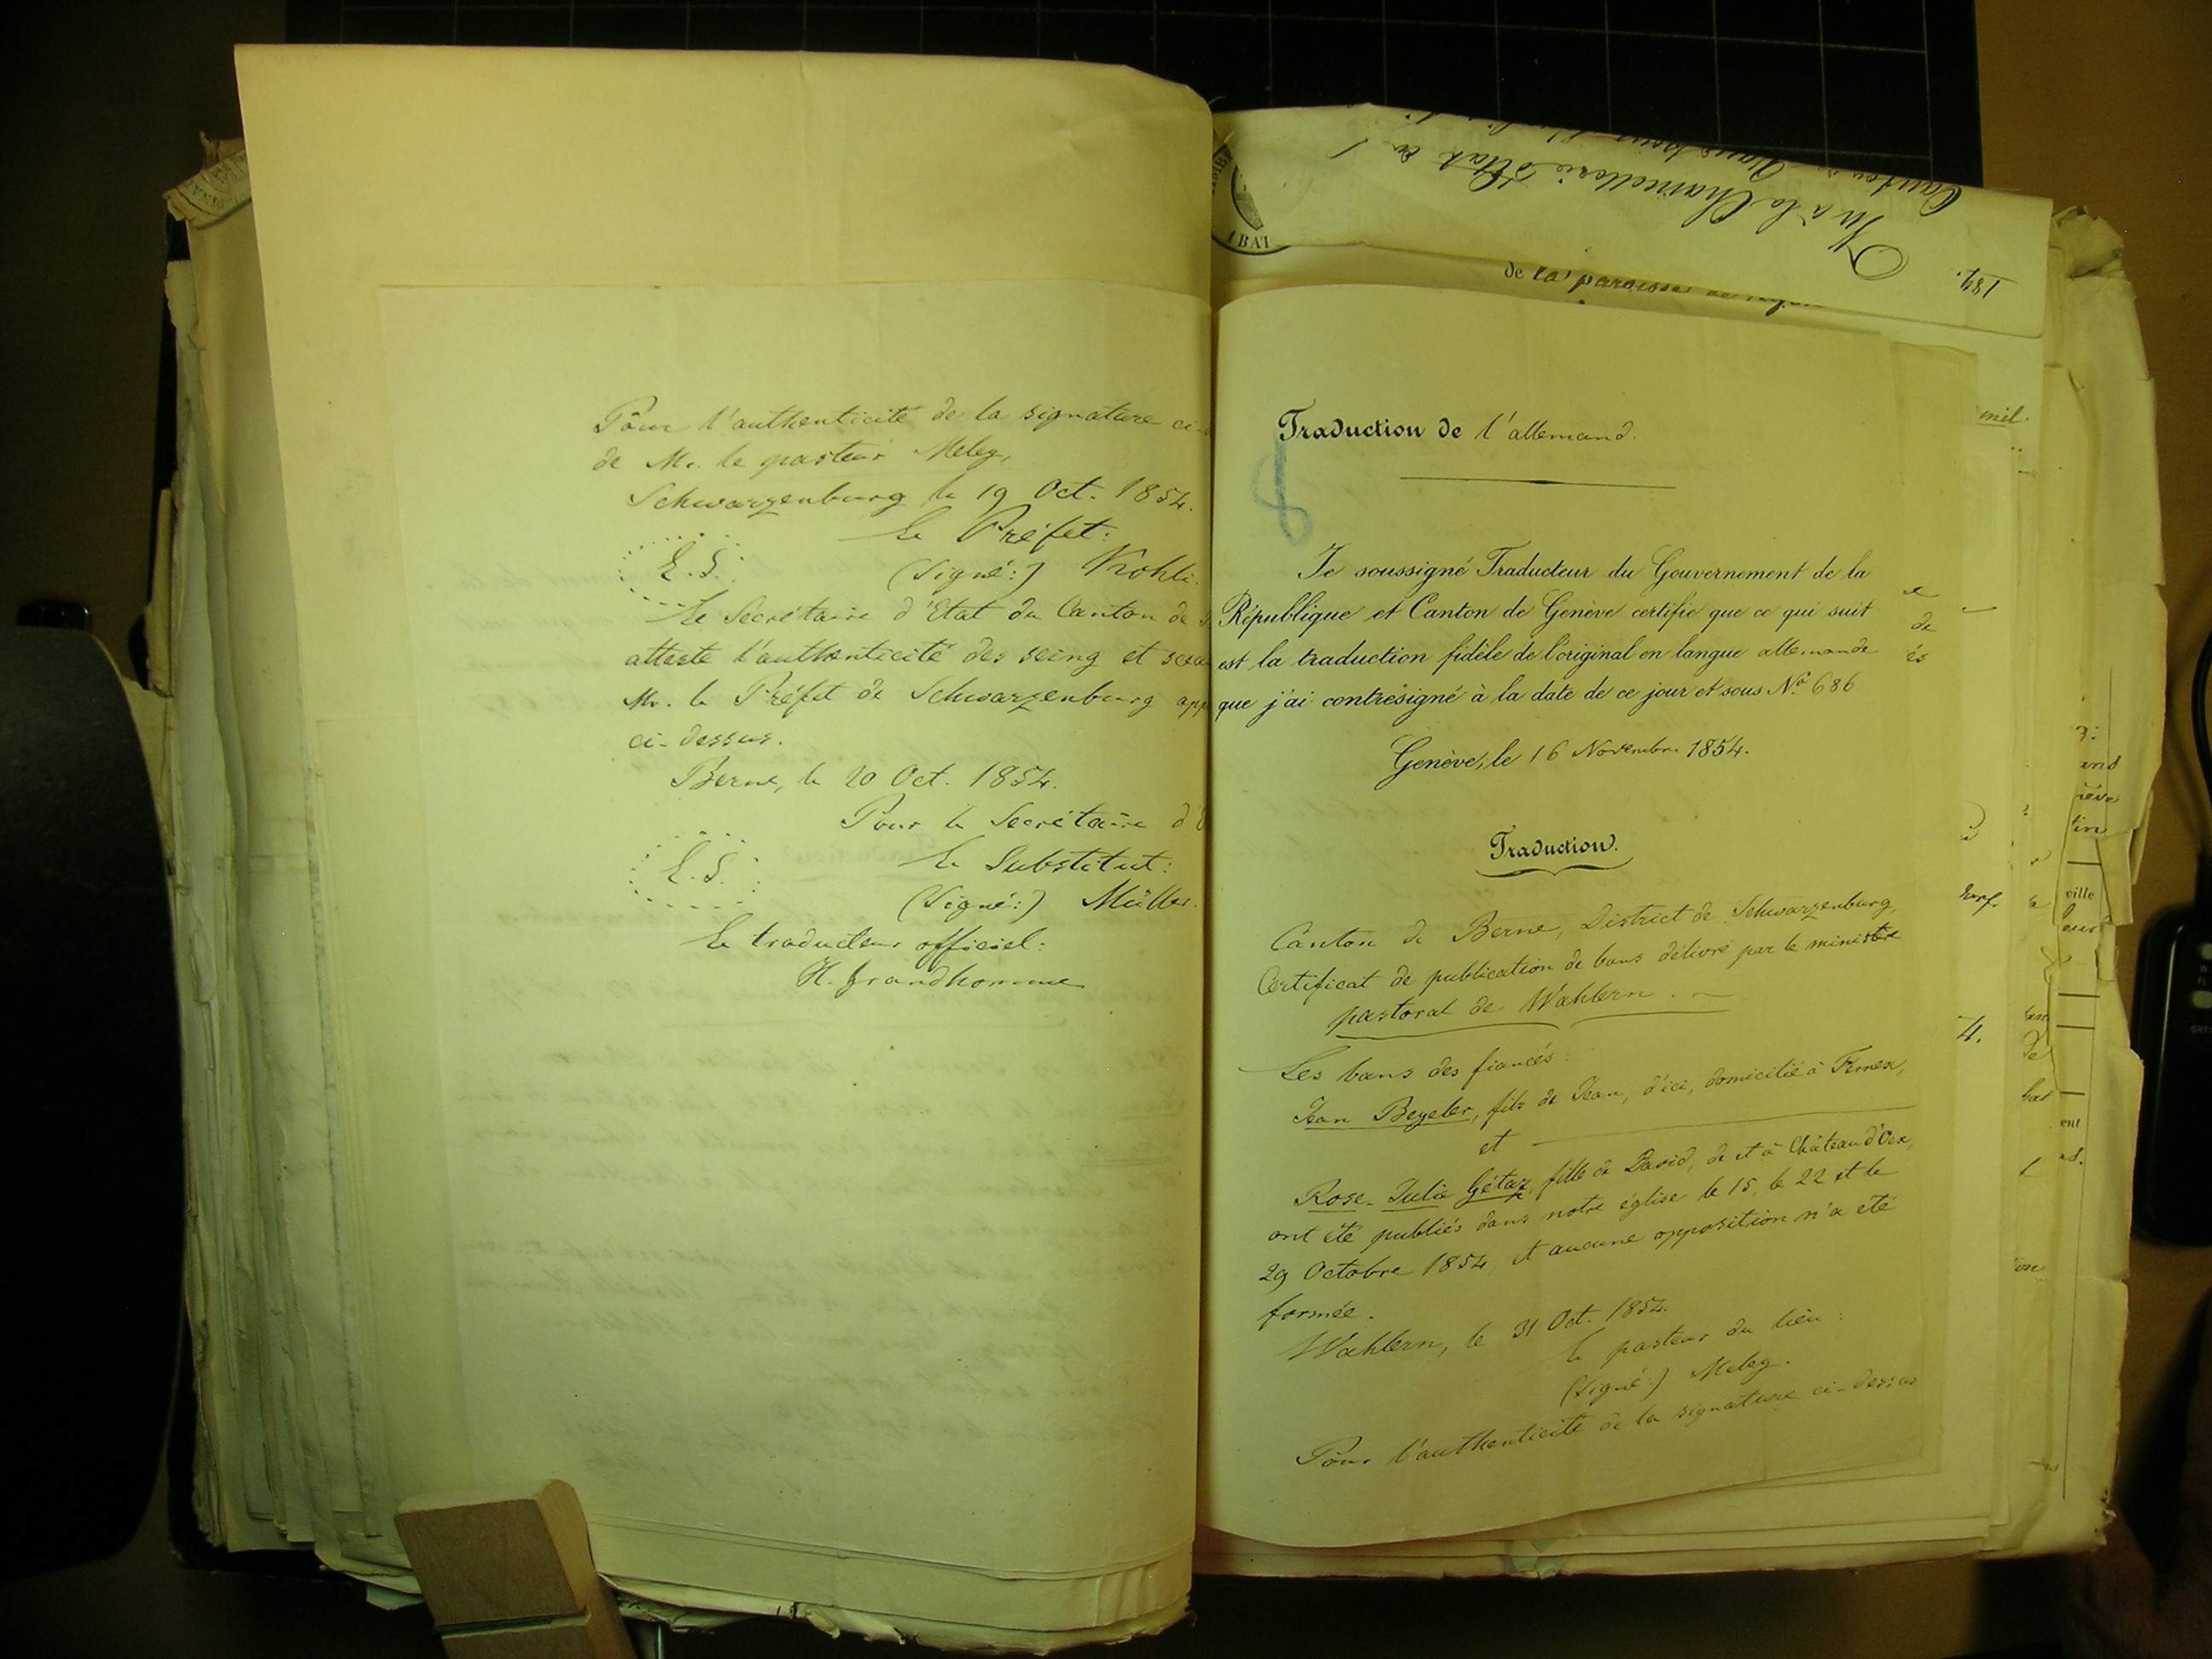 Pour l'authenticité de la signature ci-
de Mr. le pasteur Meley,
Schwarzenburg le 19 Oct. 1854.
Le Préfet:
L. S.
(Signé:) Kohli.
Le Secrétaire d'Etat du Canton de
atteste l'authenticité des seing et
Mr. le Préfet de Schwarzenburg app
ci-dessus.
Berne, le 20 Oct. 1854.
Pour le Secrétaire d'
L. S.
Le Substitut:
(Signé:) Müller.
Le traducteur officiel:
H. Grandhomme
1 BAT
à la Chancellerie d'Etat
184.
de la paroisse de
Traduction de l'allemand.
8
Je soussigné Traducteur du Gouvernement de la
République et Canton de Genève certifie que ce qui suit
est la traduction fidèle de l'original en langue allemande
que j'ai contresigné à la date de ce jour et sous No. 686
Genève, le 16 Novembre 1854.
Traduction.
Canton de Berne, District de Schwarzenburg,
Certificat de publication de bans délivré par le ministre
pastoral de Wahlern.
Les bans des fiancés:
Jean Beyeler, fils de Jean, d'ici, domicilié à Fernex,
et
Rose-Julie Gétaz, fille de David, de et à Château d'Oex,
ont été publiés dans notre église le 15, le 22 et le
29 Octobre 1854, et aucune opposition n'a été
formée.
Wahlern, le 31 Oct. 1854.
Le pasteur du lieu:
(Signé:) Meley.
Pour l'authenticité de la signature ci-dessus
mil.
ville